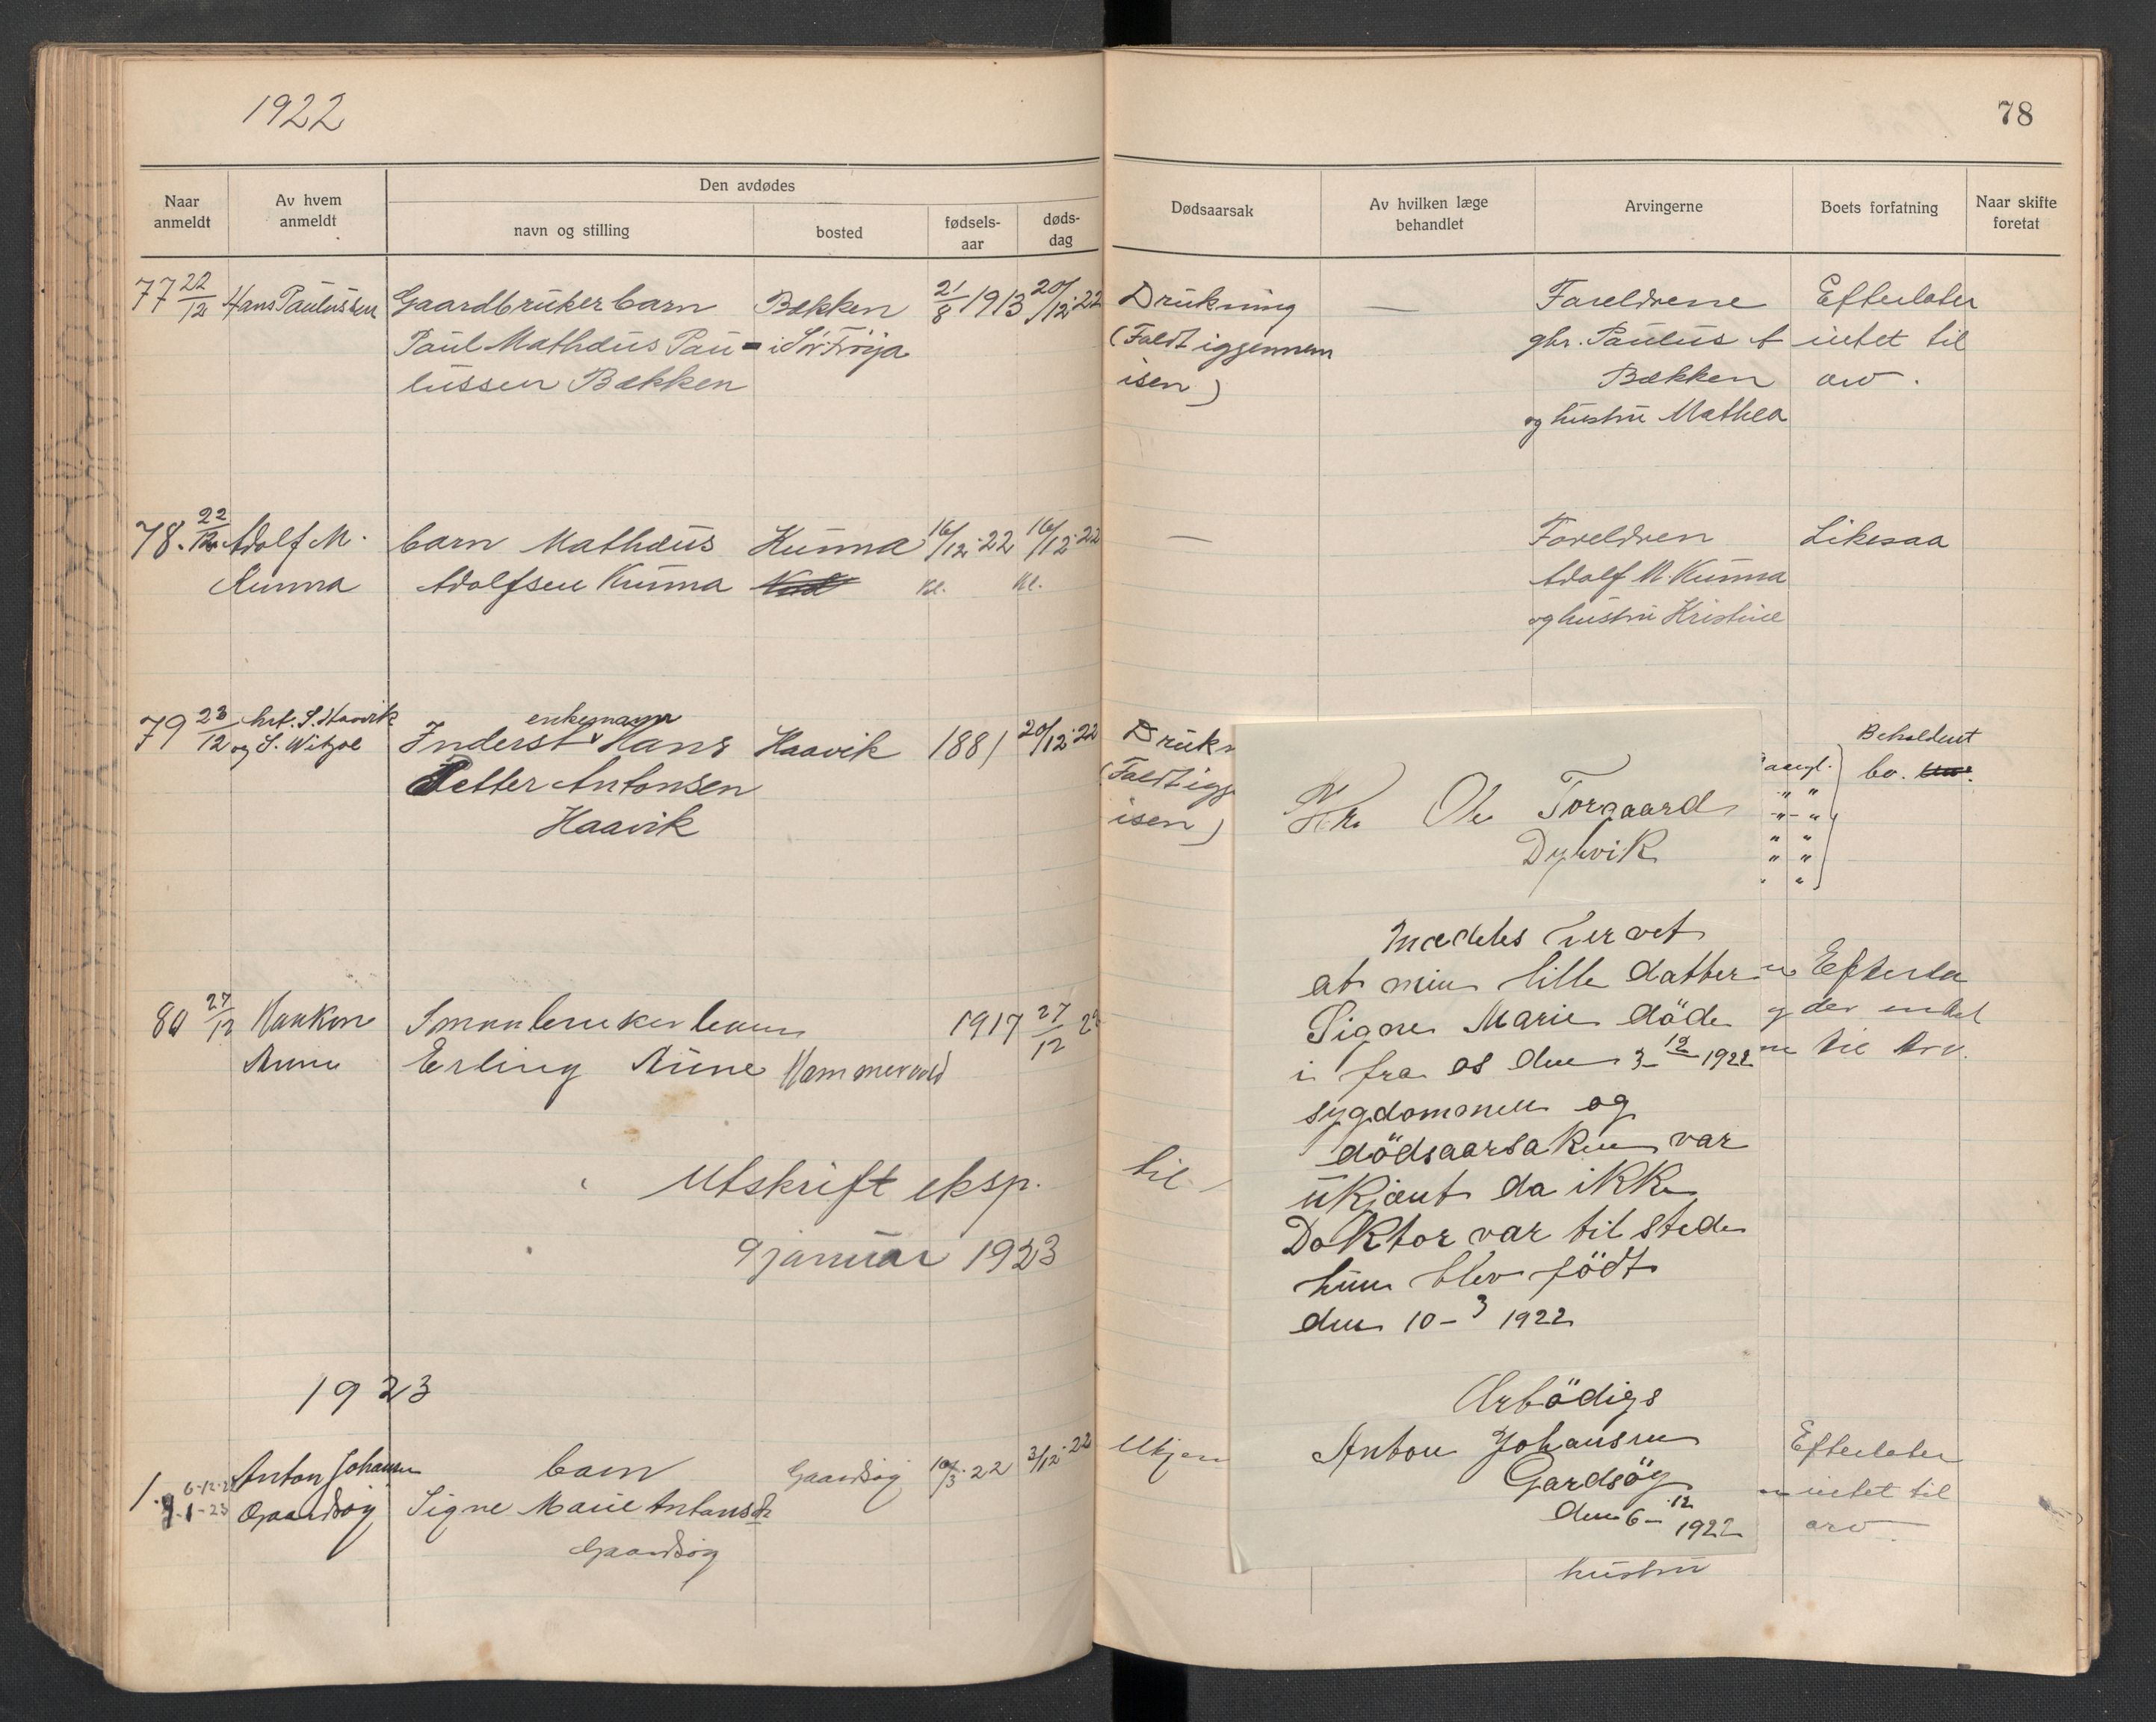 1922
78
Naar anmeldt
Av hvem anmeldt
Den avdødes
navn og stilling
bosted
fødsels-aar
døds-dag
Dødsaarsak
Av hvilken læge behandlet
Arvingerne
Boets forfatning
Naar skifte foretat
77 22/12 Hans Paulussen Gaardbruker barn Bekken 21/8 1913 20/12-22 Drukning — Foreldrene Efterlater
Paul Mathæus Pau- i Sör Fröya (Faldt iggjennem gbr. Paulus intet til
lussen Bekken isen) Bækken arv.
og hustru Mathea
78. 22/12 Adolf M. barn Mathæus Kunna 16/12-22 16/12-22 — Foreldren Likesaa
Kunna Adolfsen Kunna kl. kl. Adolf M. Kunna
og hustru Kristine
79 23/12 S. Haavik enkemann Beholdent
og S. Witsøe Inderst Hans Haavik 1881 20/12-22 Drukn bo.
Petter Antonsen (Faldt igg
Haavik isen)
80 27/12 Haakon Smaabruker barn 1917 27/12 Efterla
Aune Erling Aune Hammervold der intet
til Arv.
Utskrift eksp. til
9 januar 1923
1923
1. 6-12-22 Anton Johansen barn Gaardsøy 10/3-22 3/12-22 Ukjen Efterlater
9-1-23 Gaardsøy Signe Marie Antonsdr intet til
Gaardsøy arv
hustru
Hr. Ole Torgaard
Dyrvik
Mældes hervet
at min lille datter
Signe Marie döde
i fra os den 3-12 1922
sygdomonen og
dödsaarsaken var
ukjænt da ikke
Doktor var til stede
hun blev födt
den 10-3 1922
Ærbödigs
Anton Johansen
Gardsöy
den 6-12 1922